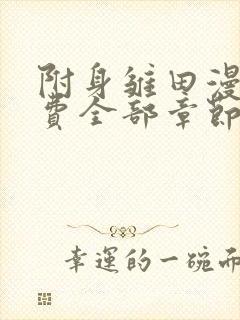 附身雏田漫
费全部章節
幸運的一碗面